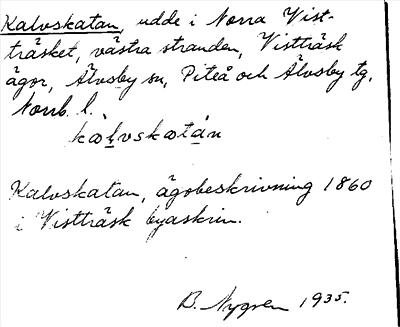 Kalvskatan, udde i Norra Vist-
träsket, västra stranden, Vistträsk
ägor, Älvsby sn, Piteå och Älvsby tg,
Norrb. l.
kalvskatàn
Kalvskatan, ägobeskrivning 1860
i Vistträsk byaskrin.
B. Nygren 1935.